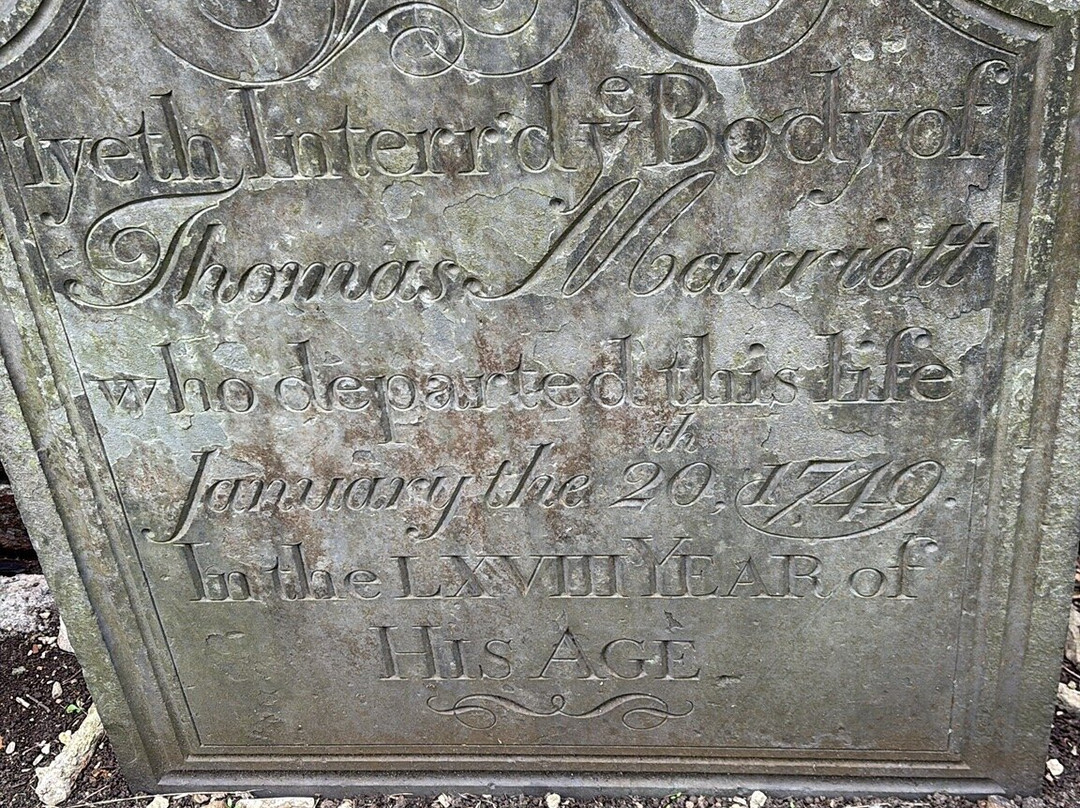 lyeth Interr'd yᵉ Body of
Thomas Marriott
who departed this life
January the 20,ᵗʰ 1749.
In the LXVIII YEAR of
HIS AGE